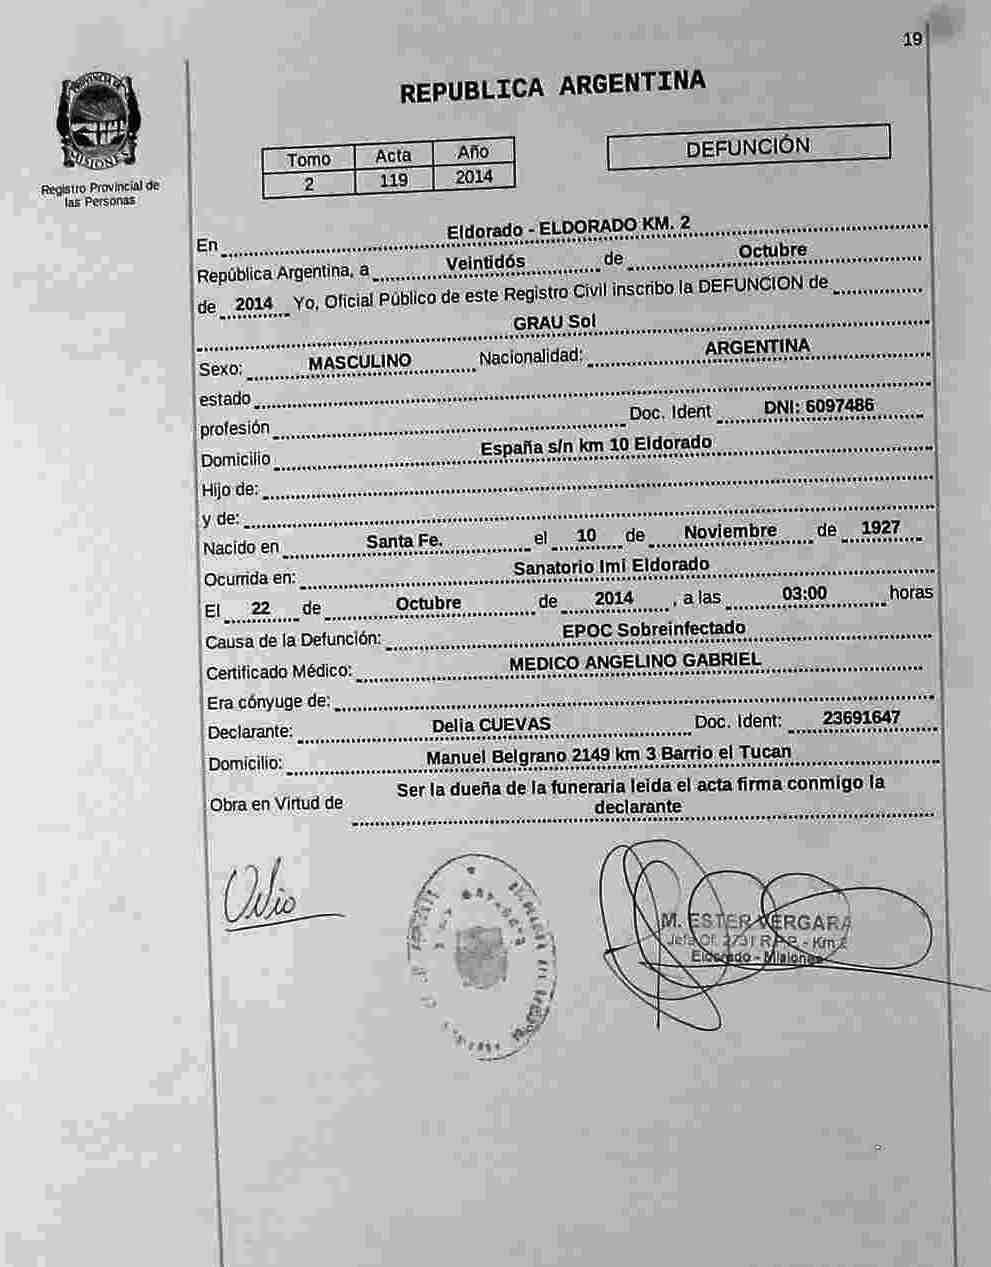 19
PROVINCIA DE
MISIONES
Registro Provincial de
las Personas
REPUBLICA ARGENTINA
Tomo Acta Año
2 119 2014
DEFUNCIÓN
En Eldorado - ELDORADO KM. 2
República Argentina, a Veintidós de Octubre
de 2014 Yo, Oficial Público de este Registro Civil inscribo la DEFUNCION de
GRAU Sol
Sexo: MASCULINO Nacionalidad: ARGENTINA
estado
profesión Doc. Ident DNI: 6097486
Domicilio España s/n km 10 Eldorado
Hijo de:
y de:
Nacido en Santa Fe. el 10 de Noviembre de 1927
Ocurrida en: Sanatorio Imi Eldorado
El 22 de Octubre de 2014, a las 03:00 horas
Causa de la Defunción: EPOC Sobreinfectado
Certificado Médico: MEDICO ANGELINO GABRIEL
Era cónyuge de:
Declarante: Delia CUEVAS Doc. Ident: 23691647
Domicilio: Manuel Belgrano 2149 km 3 Barrio el Tucan
Obra en Virtud de Ser la dueña de la funeraria leida el acta firma conmigo la
declarante
M. ESTER VERGARA
Jefa Of. 2731 R.P.P. - Km 2
Eldorado - Misiones